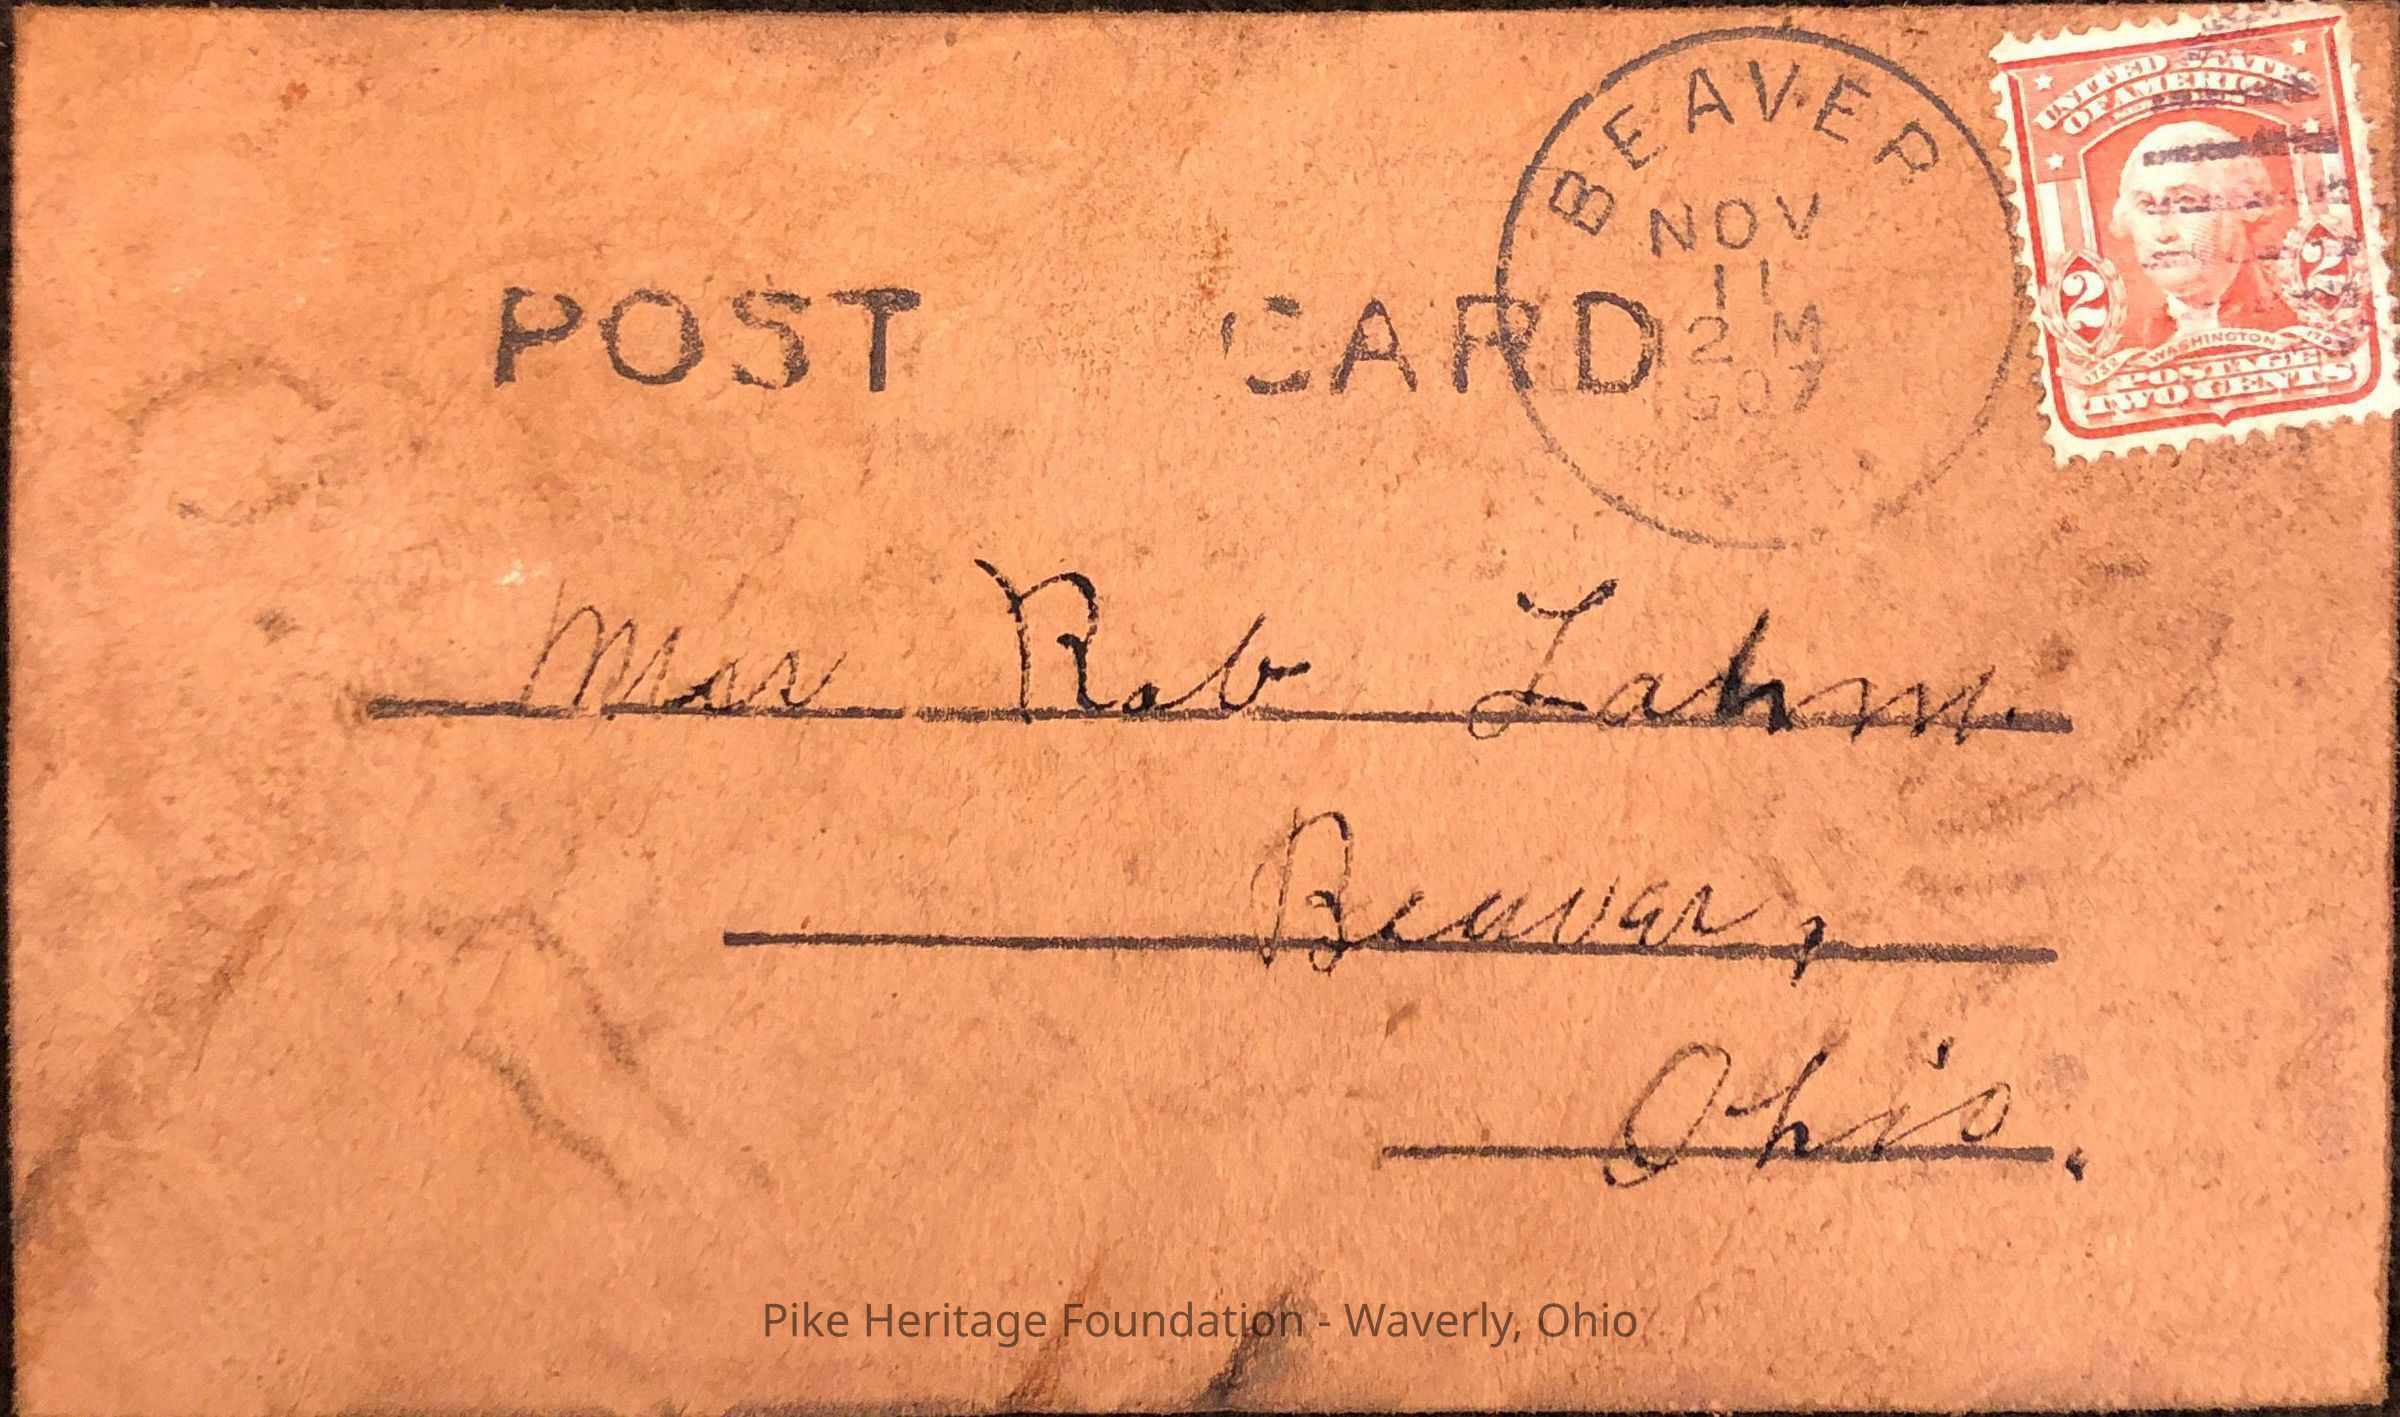 BEAVER
NOV
11
12 M
1907
UNITED STATES
OF AMERICA
2 2
WASHINGTON
POSTAGE
TWO CENTS
POST CARD
Rob Lahm.
Beaver,
Ohio.
Pike Heritage Foundation - Waverly, Ohio